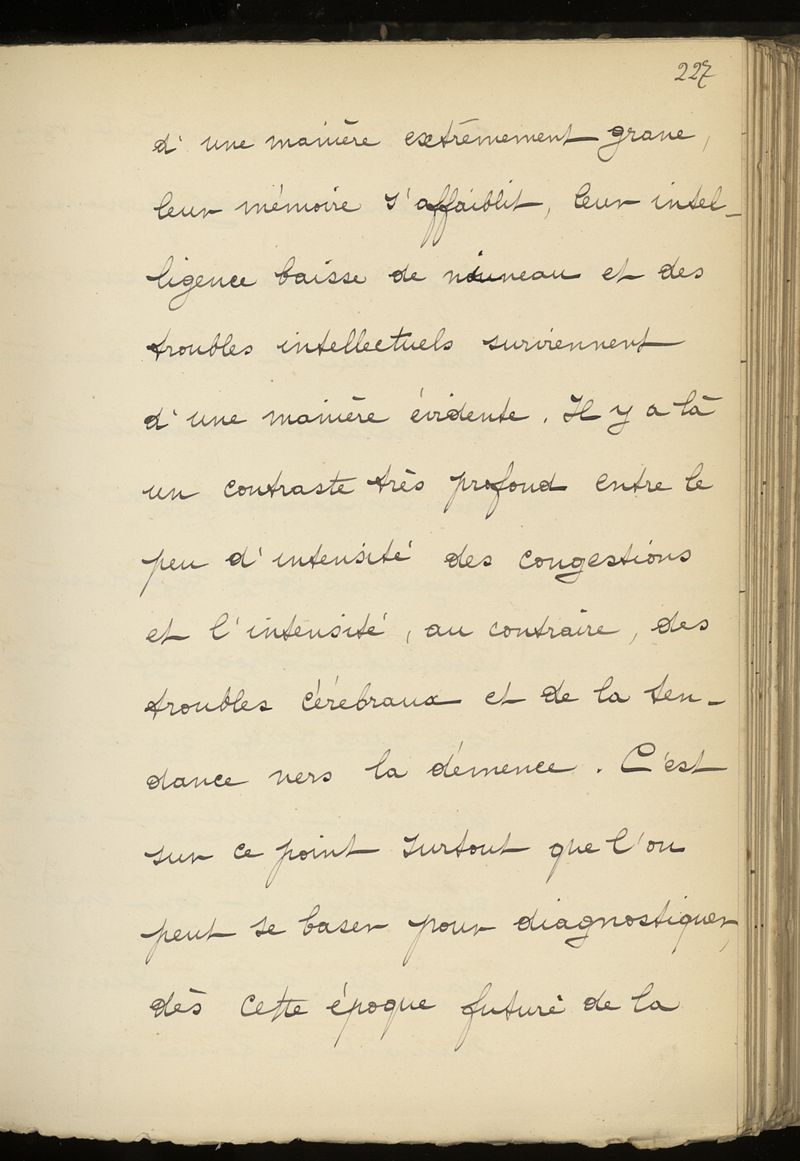 227
d'une manière extrêmement grave,
leur mémoire s'affaiblit, leur intel-
ligence baisse de niveau et des
troubles intellectuels surviennent
d'une manière évidente. Il y a là
un contraste très profond entre le
peu d'intensité des congestions
et l'intensité, au contraire, des
troubles cérébraux et de la ten-
dance vers la démence. C'est
sur ce point surtout que l'on
peut se baser pour diagnostiquer,
dès cette époque future de la